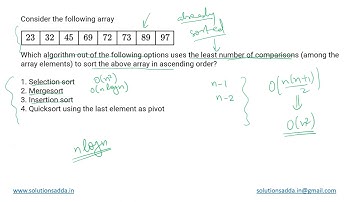 Consider the following array
already
sorted
23 32 45 69 72 73 89 97
Which algorithm out of the following options uses the least number of comparisons (among
the array elements) to sort the above array in ascending order?
1. Selection sort O(n²)
2. Mergesort O(n logn)
3. Insertion sort
4. Quicksort using the last element as pivot
n-1
n-2
O(n(n+1)/2)
O(n²)
nlogn
www.solutionsadda.in
solutionsadda.in@gmail.com